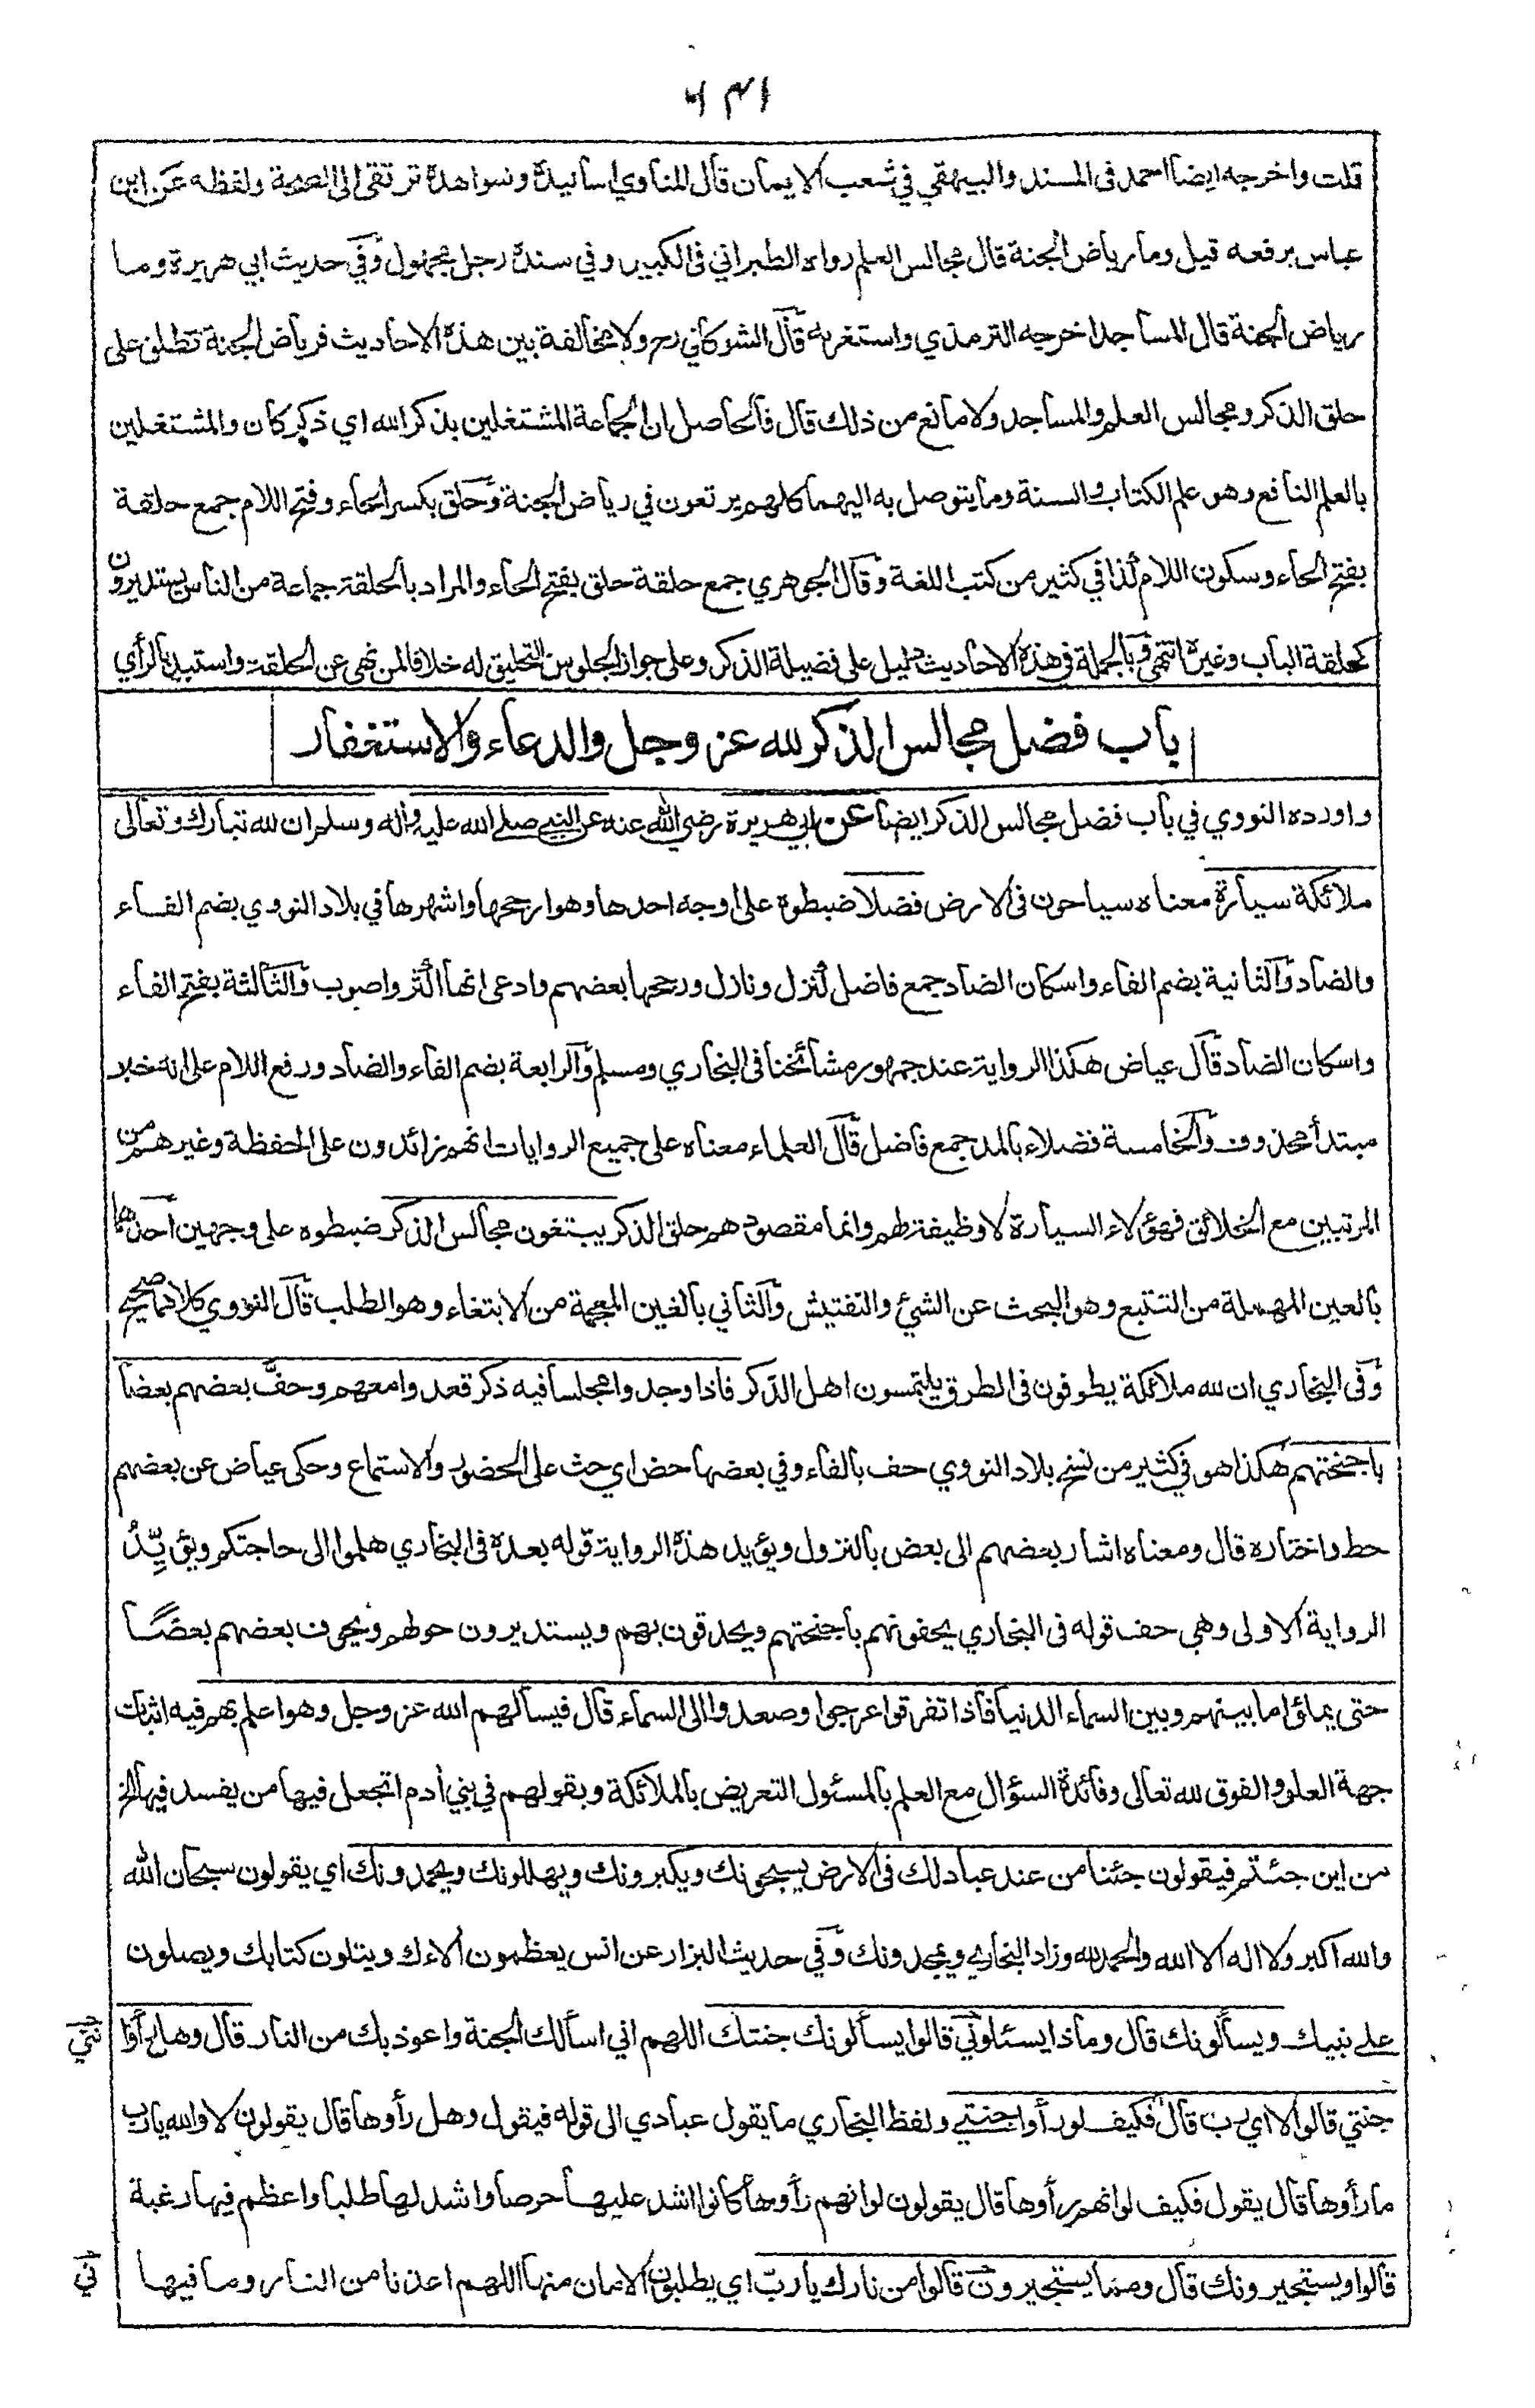 قلت واخرجه ايضا احمد فى المسند والبيهقي في شعب الايمان قال المناوي اسانيدة وشواهدة ترتقى الى الصحة ولفظه عن ابن
عباس يرفعه قيل وما رياض الجنة قال مجالس العلم رواه الطبراني فى الكبير وفي سندة رجل مجهول وفي حديث ابي هريرة وما
رياض الجنة قال المساجد اخرجه الترمذي واستغربه قال الشوكاني رح ولا مخالفة بين هذة الاحاديث فرياض الجنة تطلق على
حلق الذكر ومجالس العلم والمساجد ولا مانع من ذلك قال فالحاصل ان الجماعة المشتغلين بذكر الله اي ذكر كان والمشتغلين
بالعلم النافع وهو علم الكتاب والسنة وما يتوصل به اليهما كلهم يرتعون في رياض الجنة وحلق بكسر الحاء وفتح اللام جمع حلقة
بفتح الحاء وسكون اللام كذا في كثير من كتب اللغة وقال الجوهري جمع حلقة حلق بفتح الحاء والمراد بالحلقة جماعة من الناس يستديرون
كحلقة الباب وغيرة انتهى وبالجملة في هذة الاحاديث دليل على فضيلة الذكر وعلى جواز الجلوس التحليق له خلافا لمن نهى عن الحلقة واستبد بالرأي
باب فضل مجالس الذكر لله عز وجل والدعاء والاستغفار
واورده النووي في باب فضل مجالس الذكر ايضا عن ابي هريرة رضي الله عنه عن النبي صلى الله عليه وأله وسلم ان لله تبارك وتعالى
ملائكة سيارة معناه سياحون فى الارض فضلا ضبطوة على اوجه احدها وهو ارجحها واشهرها في بلاد النووي بضم الفاء
والضاد والثانية بضم الفاء واسكان الضاد جمع فاضل كنزل ونازل ورجحها بعضهم وادعى انها اكثر واصوب والثالثة بفتح الفاء
واسكان الضاد قال عياض هكذا الرواية عند جمهور مشائخنا فى البخاري ومسلم والرابعة بضم الفاء والضاد ورفع اللام على انه خبر
مبتدأ محذوف والخامسة فضلاء بالمد جمع فاضل قال العلماء معناه على جميع الروايات انهم زائدون على الحفظة وغيرهم من
المرتبين مع الخلائق فهؤلاء السيارة لا وظيفة لهم وانما مقصودهم حلق الذكر يبتغون مجالس الذكر ضبطوه على وجهين احدهما
بالعين المهملة من التتبع وهو البحث عن الشئ والتفتيش والثاني بالغين المعجمة من الابتغاء وهو الطلب قال النووي كلاهما صحيح
وفى البخاري ان لله ملائكة يطوفون فى الطرق يلتمسون اهل الذكر فاذا وجدوا مجلسا فيه ذكر قعدوا معهم وحف بعضهم بعضا
باجنحتهم هكذا هو في كثير من نسخ بلاد النووي حف بالفاء وفي بعضها حض اي حث على الحضور والاستماع وحكى عياض عن بعضهم
حط واختاره قال ومعناه اشار بعضهم الى بعض بالنزول ويؤيد هذة الرواية قوله بعدة فى البخاري هلموا الى حاجتكم ويؤيد
الرواية الاولى وهي حف قوله فى البخاري يحفونهم باجنحتهم ويحدقون بهم ويستديرون حولهم ويحوف بعضهم بعضا
حتى يملؤا ما بينهم وبين السماء الدنيا فاذا تفرقوا عرجوا وصعدوا الى السماء قال فيسألهم الله عز وجل وهو اعلم بهم فيه اثبات
جهة العلو والفوق لله تعالى وفائدة السؤال مع العلم بالمسئول التعريض بالملائكة وبقولهم في بني أدم اتجعل فيها من يفسد فيها الخ
من اين جئتم فيقولون جئنا من عند عباد لك فى الارض يسبحونك ويكبرونك ويهللونك ويحمدونك اي يقولون سبحان الله
والله اكبر ولا اله الا الله والحمد لله وزاد البخاري ويمجدونك وفي حديث البزار عن انس يعظمون ألاءك ويتلون كتابك ويصلون
على نبيك ويسألونك قال وماذا يسئلوني قالوا يسألونك جنتك اللهم اني اسألك الجنة واعوذ بك من النار قال وهل رأوا
جنتي قالوا لا اي رب قال فكيف لو رأوا جنتي ولفظ البخاري ما يقول عبادي الى قوله فيقول وهل رأوها قال يقولون لا والله يارب
ما رأوها قال يقول فكيف لو انهم رأوها قال يقولون لو انهم رأوها كانوا اشد عليها حرصا واشد لها طلبا واعظم فيها رغبة
قالوا ويستجيرونك قال ومما يستجيرون قالوا من نارك يا رب اي يطلبون الامان منها اللهم اعذنا من النار وما فيها